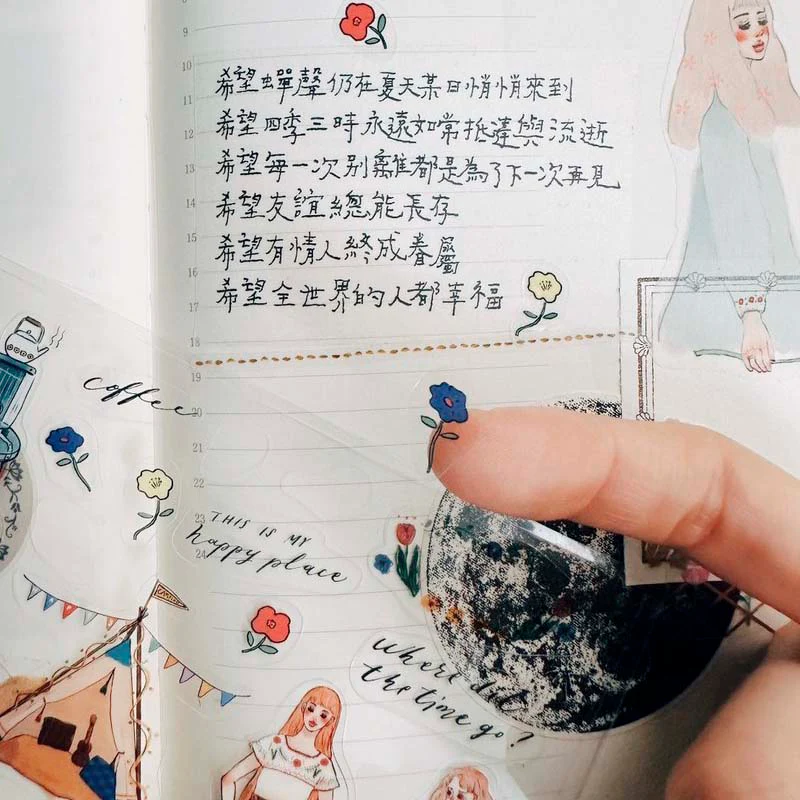 9
10
11
12
13
14
15
16
17
18
19
20
21
22
23
24
希望蟬聲仍在夏天某日悄悄來到
希望四季三時永遠如常抵達與流逝
希望每一次別離都是為了下一次再見
希望友誼總能長存
希望有情人終成眷屬
希望全世界的人都幸福
coffee
THIS IS MY
happy place
Where did
the time go?